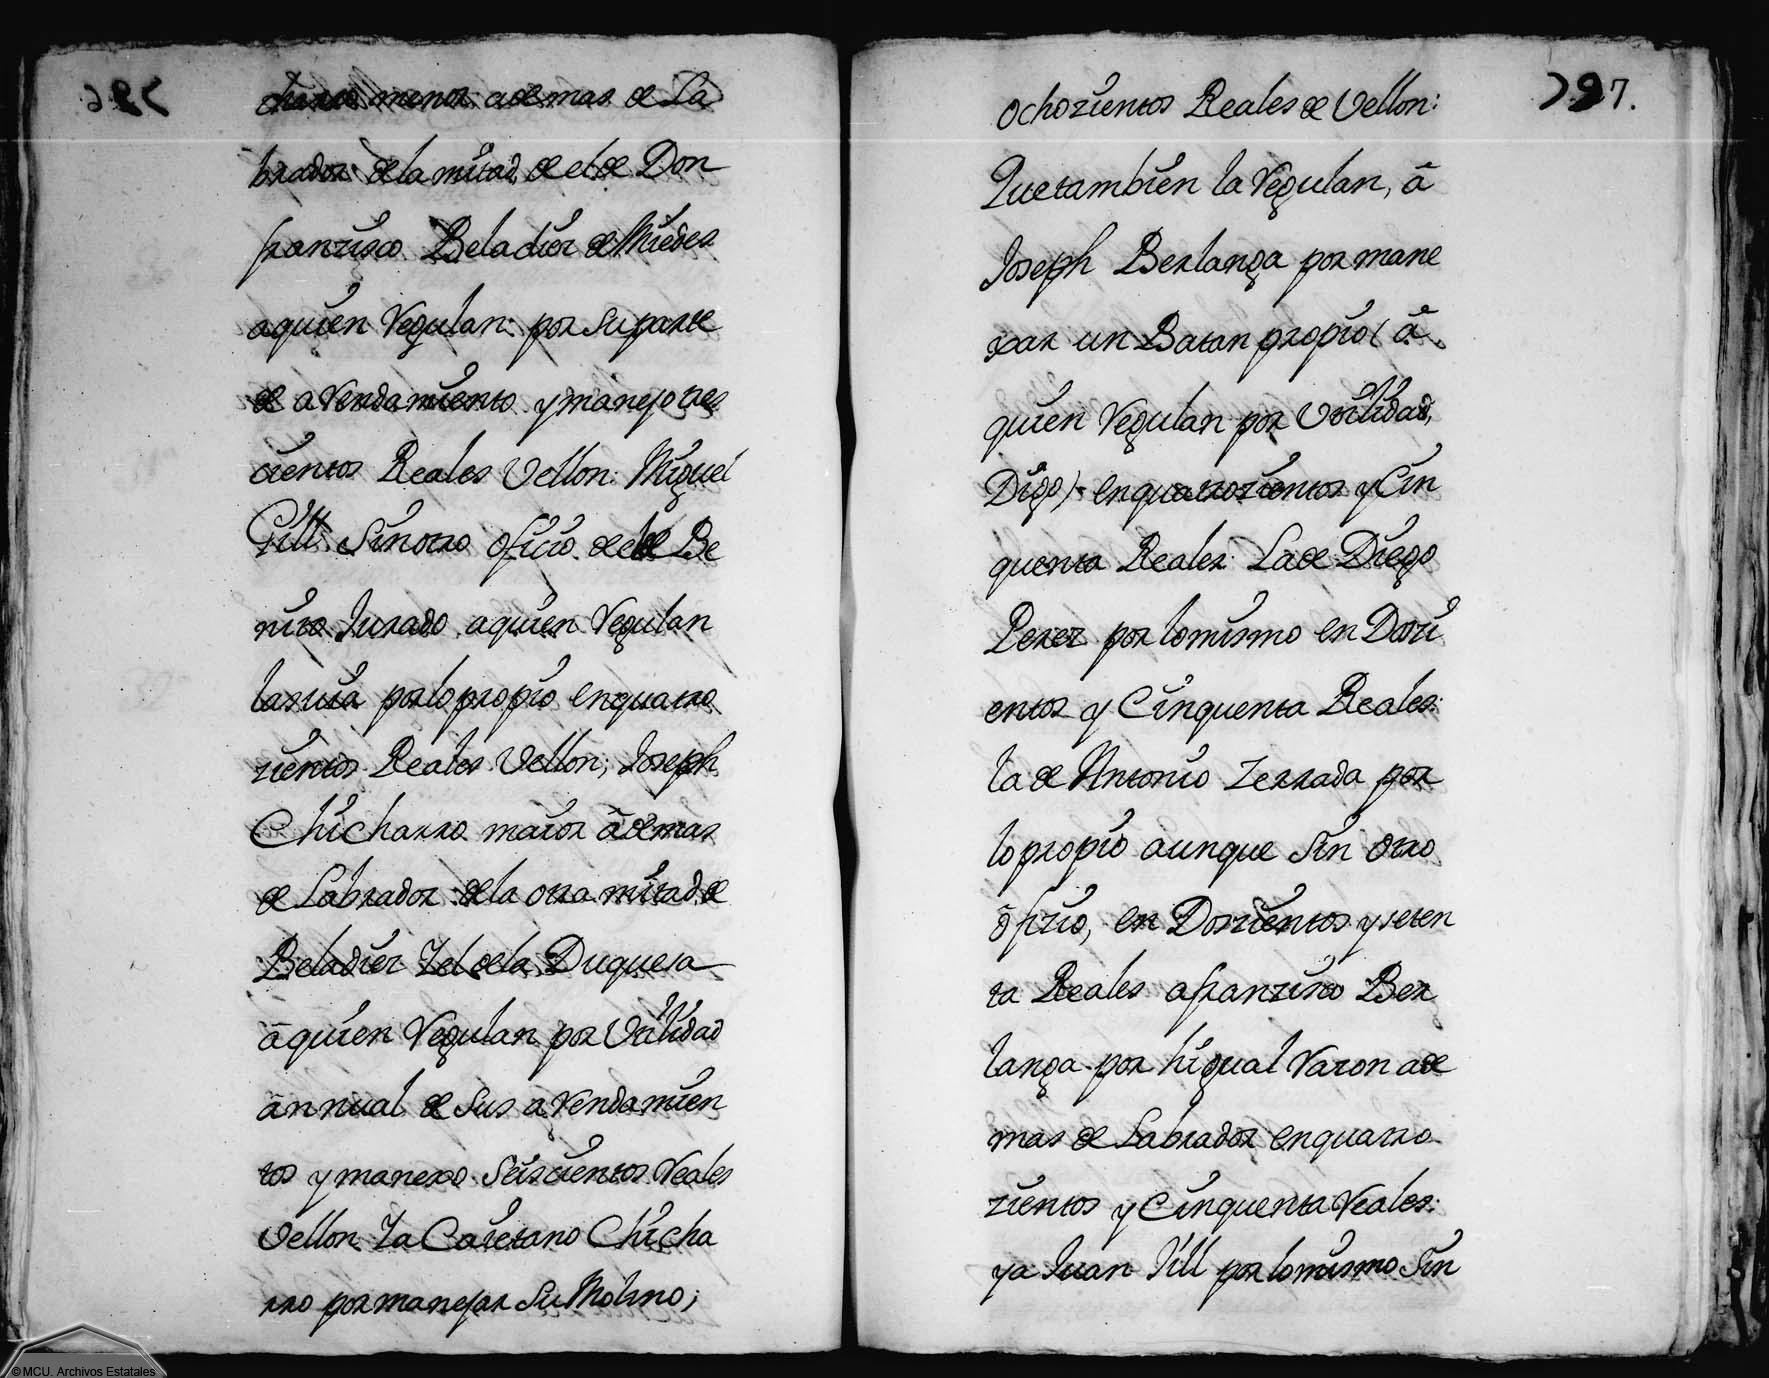 charro menor ademas de La
brador de la mitad, de el de Don
franzisco Beladiez de Miedes
aquien Regulan: por su parte
de arrendamiento y manejo tres
cientos Reales Vellon: Miguel
Gill sin otro ofizio de el de Be
nito Jurado aquien Regulan
la suia por lo propio en quatro
zientos Reales Vellon; Joseph
Chicharro maior ademas
de Labrador de la otra mitad de
Beladiez Y el de la Duquesa
aquien Regulan por Utilidad
annual de sus arrendamien
tos y manexo Seiscientos Reales
Vellon Y a Caietano Chicha
rro por manejar su Molino;
797.
ochozientos Reales de Vellon:
Que tambien la Regulan, a
Joseph Berlanga por mane
xar un Batan propio (a
quien Regulan por Utilidad,
Digo) en quatrozientos y Cin
quenta Reales: La de Diego
Perez por lo mismo en Dozi
entos y Cinquenta Reales:
la de Antonio Zerrada por
lo propio aunque sin otro
ofizio, en Doszientos y seten
ta Reales a franzisco Ber
langa por higual Razon ade
mas de Labrador en quatro
zientos y Cinquenta Reales:
y a Juan Gill por lo mismo sin